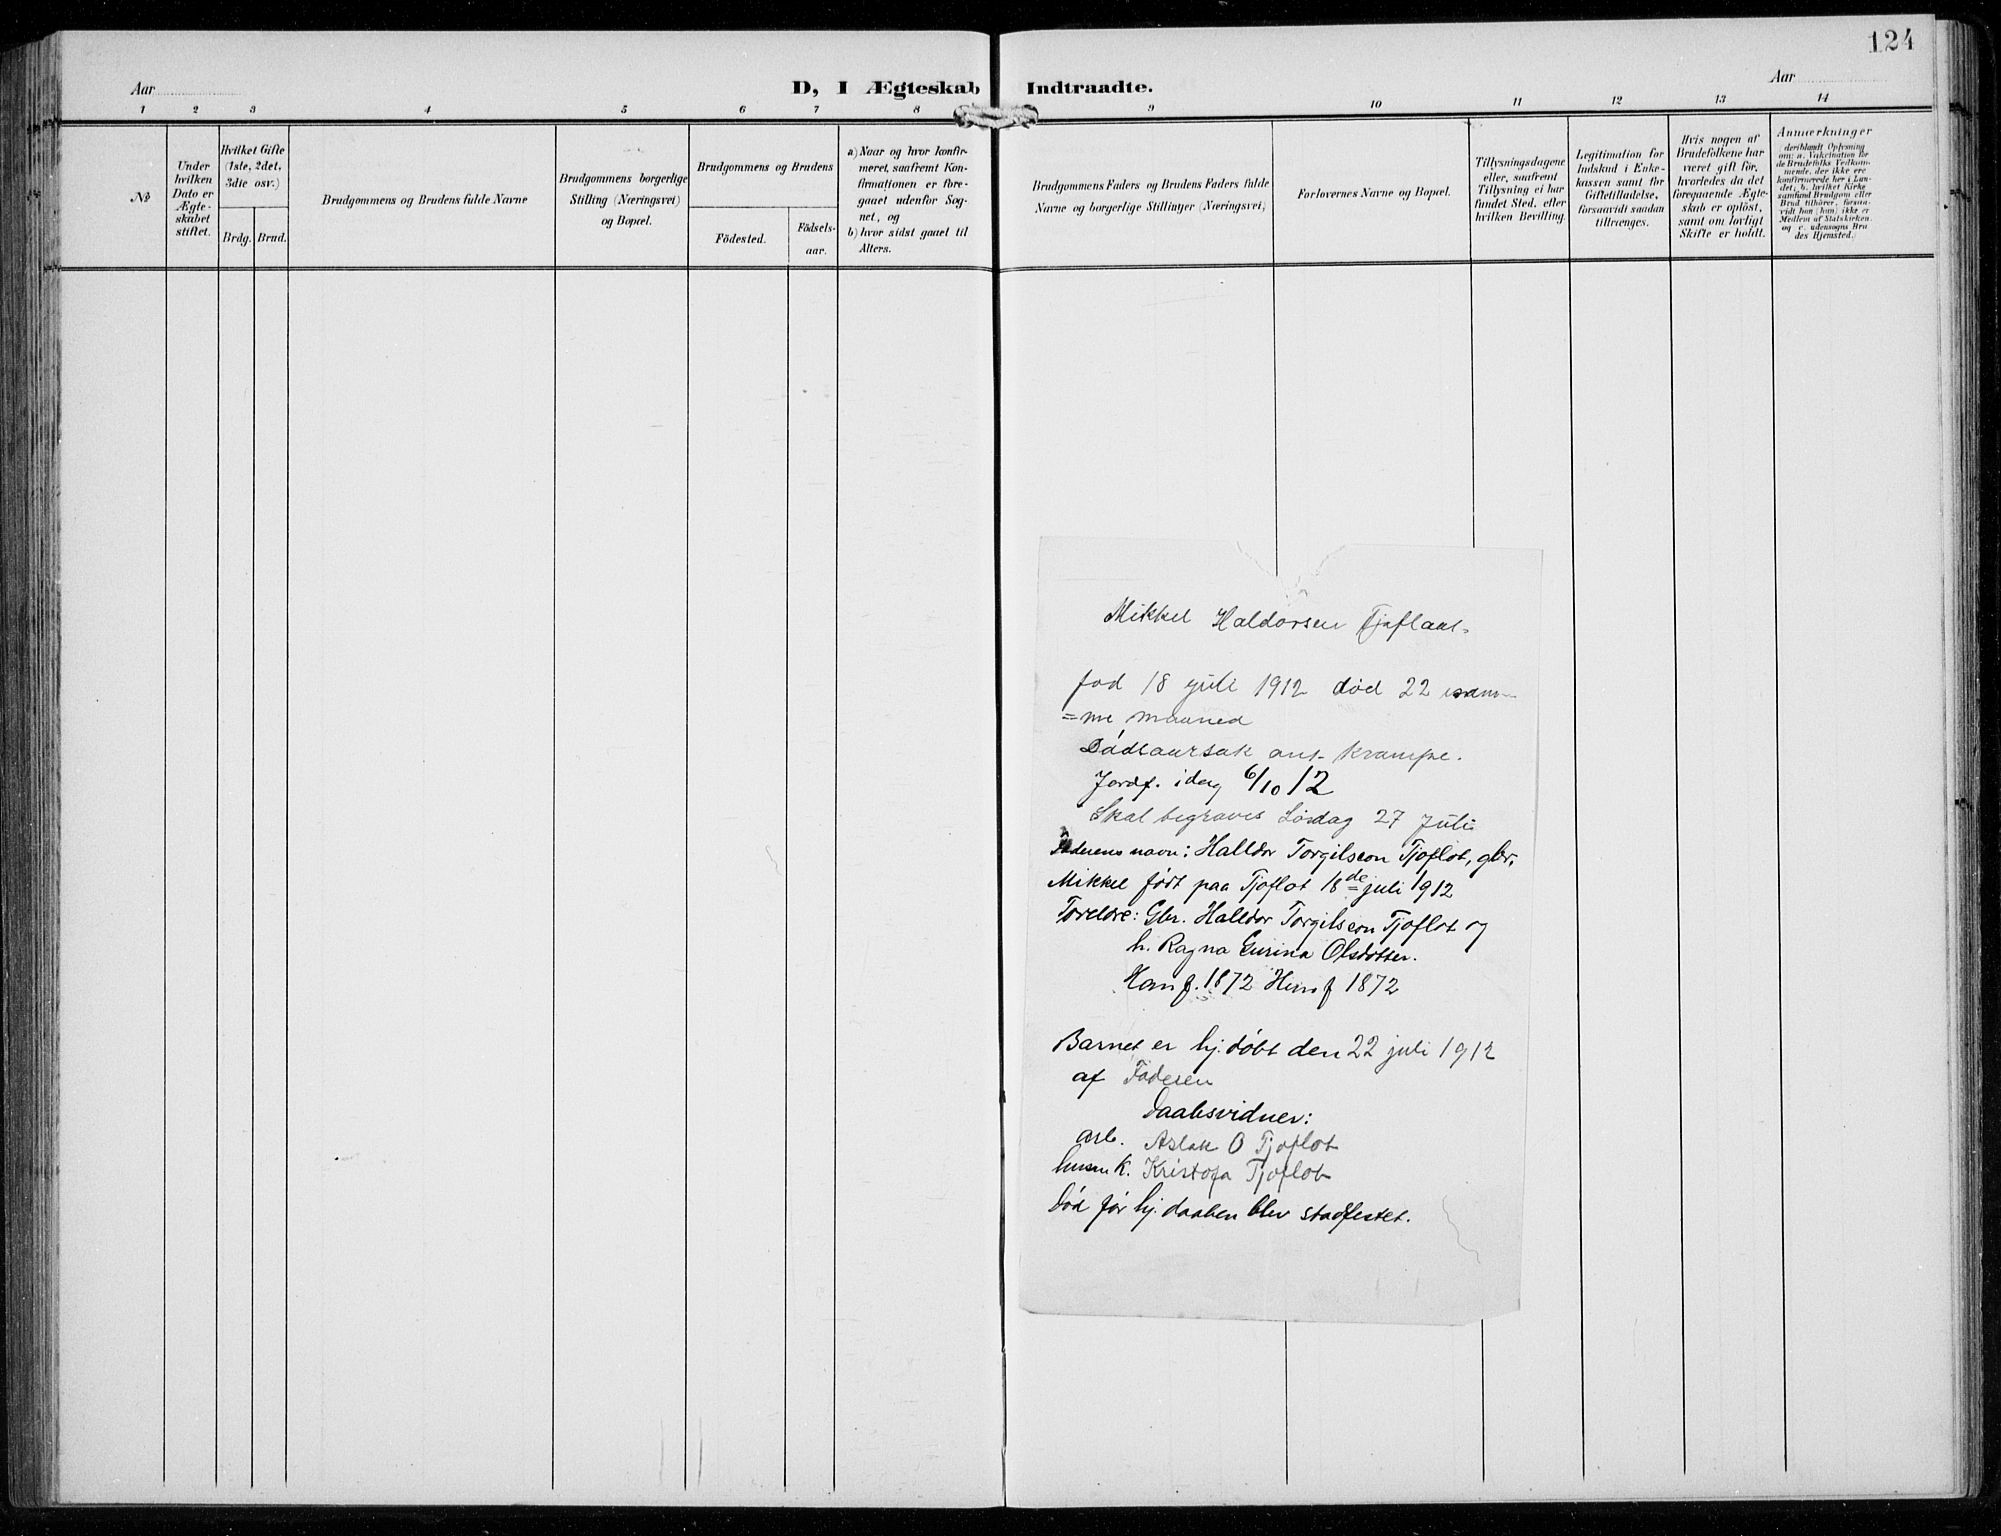 124
Aar
D, I Ægteskab Indtraadte.
Aar
1 2 3 4 5 6 7 8 9 10 11 12 13 14
No
Under
hvilken
Dato er
Ægte-
skabet
stiftet.
Hvilket Gifte
(1ste, 2det,
3die osv.)
Brdg. Brud.
Brudgommens og Brudens fulde Navne
Brudgommens borgerlige
Stilling (Næringsvei)
og Bopæl.
Brudgommens og Brudens
Födested.
Födsels-
aar.
a) Naar og hvor konfir-
meret, saafremt Kon-
firmationen er fore-
gaaet udenfor Sog-
net, og
b) hvor sidst gaaet til
Alters.
Brudgommens Faders og Brudens Faders fulde
Navne og borgerlige Stillinger (Næringsvei)
Forlovernes Navne og Bopæl.
Tillysningsdagene
eller, saafremt
Tillysning ei har
fundet Sted, efter
hvilken Bevilling.
Legitimation for
Indskud i Enke-
kassen samt for
Giftetilladelse,
forsaavidt saadan
tiltrænges.
Hvis nogen af
Brudefolkene har
været gift för,
hvorledes da det
foregaaende Ægte-
skab er oplöst,
samt om lovligt
Skifte er holdt.
Anmærkninger
(deriblandt Oplysning
om: a. Vakcination for
de Brudefolks Vedkom-
mende, der ikke ere
konfirmerede her i Lan-
det, b. hvilket Kirke-
samfund Brudgom eller
Brud tilhörer, forsaa-
vidt han (hun) ikke er
Medlem af Statskirken,
og c. udensogns Bru-
des Hjemsted.)
Mikkel Haldorsen
fød 18 juli 1912 død 22 sam-
=me maaned
Dødsaarsak ant. krampe.
Jordf. idag 6/10 12
Skal begraves Lördag 27 Juli
Faderens navn: Halldor Torgilson Tjoflot, gbr.
Mikkel født paa Tjoflot 18de juli 1912
Foreldre: Gbr. Halldor Torgilson Tjoflot og
h. Ragna Gurina Olsdotter.
Han f. 1872 Hun f 1872
Barnet er hj. døbt den 22 juli 1912
af Faderen
Daabsvidner:
arb. Aslak O Tjoflot
K. Kristofa Tjoflot
Død før hj. daaben blev stadfestet.